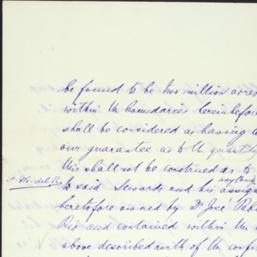 be found to be two million acres
within the boundaries hereinbefore
shall be considered as having
our guarantee as to the quantity
this shall not be construed as to
anything
to said Stewards and his assigns
heretofore owned by Dn José
Rio and contained within the
above described with of the